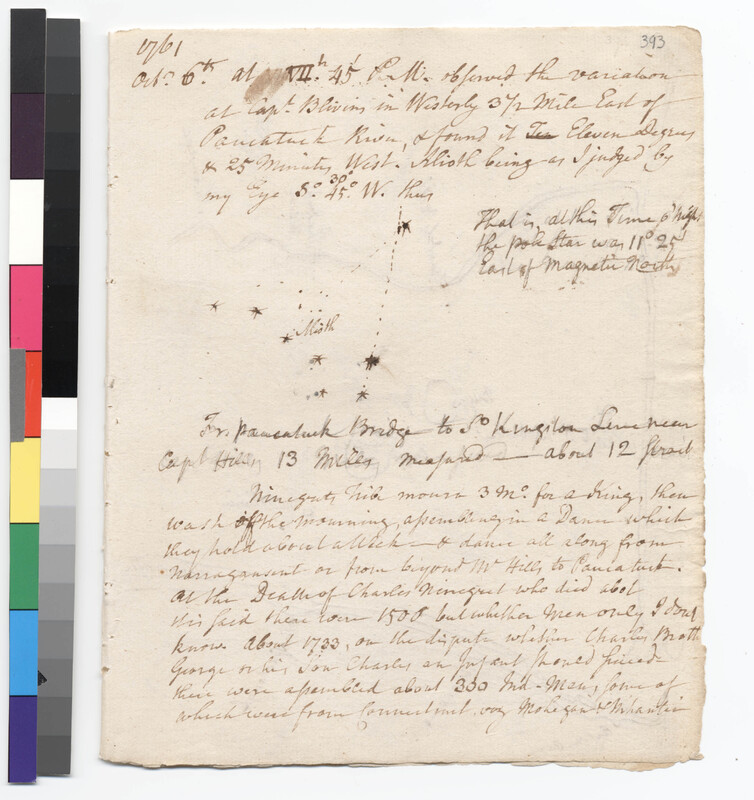 393
1761
Octr. 6th. at VII.h 45' P.M. observed the variation
at Capt. Blivins in Westerly 3 1/2 Mile East of
Paucatuck River, & found it Ten Eleven Degrees
& 25 Minutes West. Alioth being as I judged by
my Eye So. 30° 45° W. thus
That is, at this Time o' Night
the pole Star was 11° 25'
East of Magnetic North
Alioth
Fr. Paucatuck Bridge to So Kingston Line near
Capt Hills 13 Miles measured — about 12 strait
Ninegrets Tribe mourn 3 Mo. for a King, then
wash off the mourning, assembling in a Dance which
they hold about a Week — & dance all along from
Narragansett or from beyond Mr Hills to Paucatuck.
At the Death of Charles Ninegret who died abot
tis said there were 1500 but whether Men only I dont
know. About 1733, on the dispute whether Charles Broth
George or his Son Charles an Infant should succede
there were assembled about 300 Ind. Men, some of
which were from Connecticut, Mohegan & Nihantic